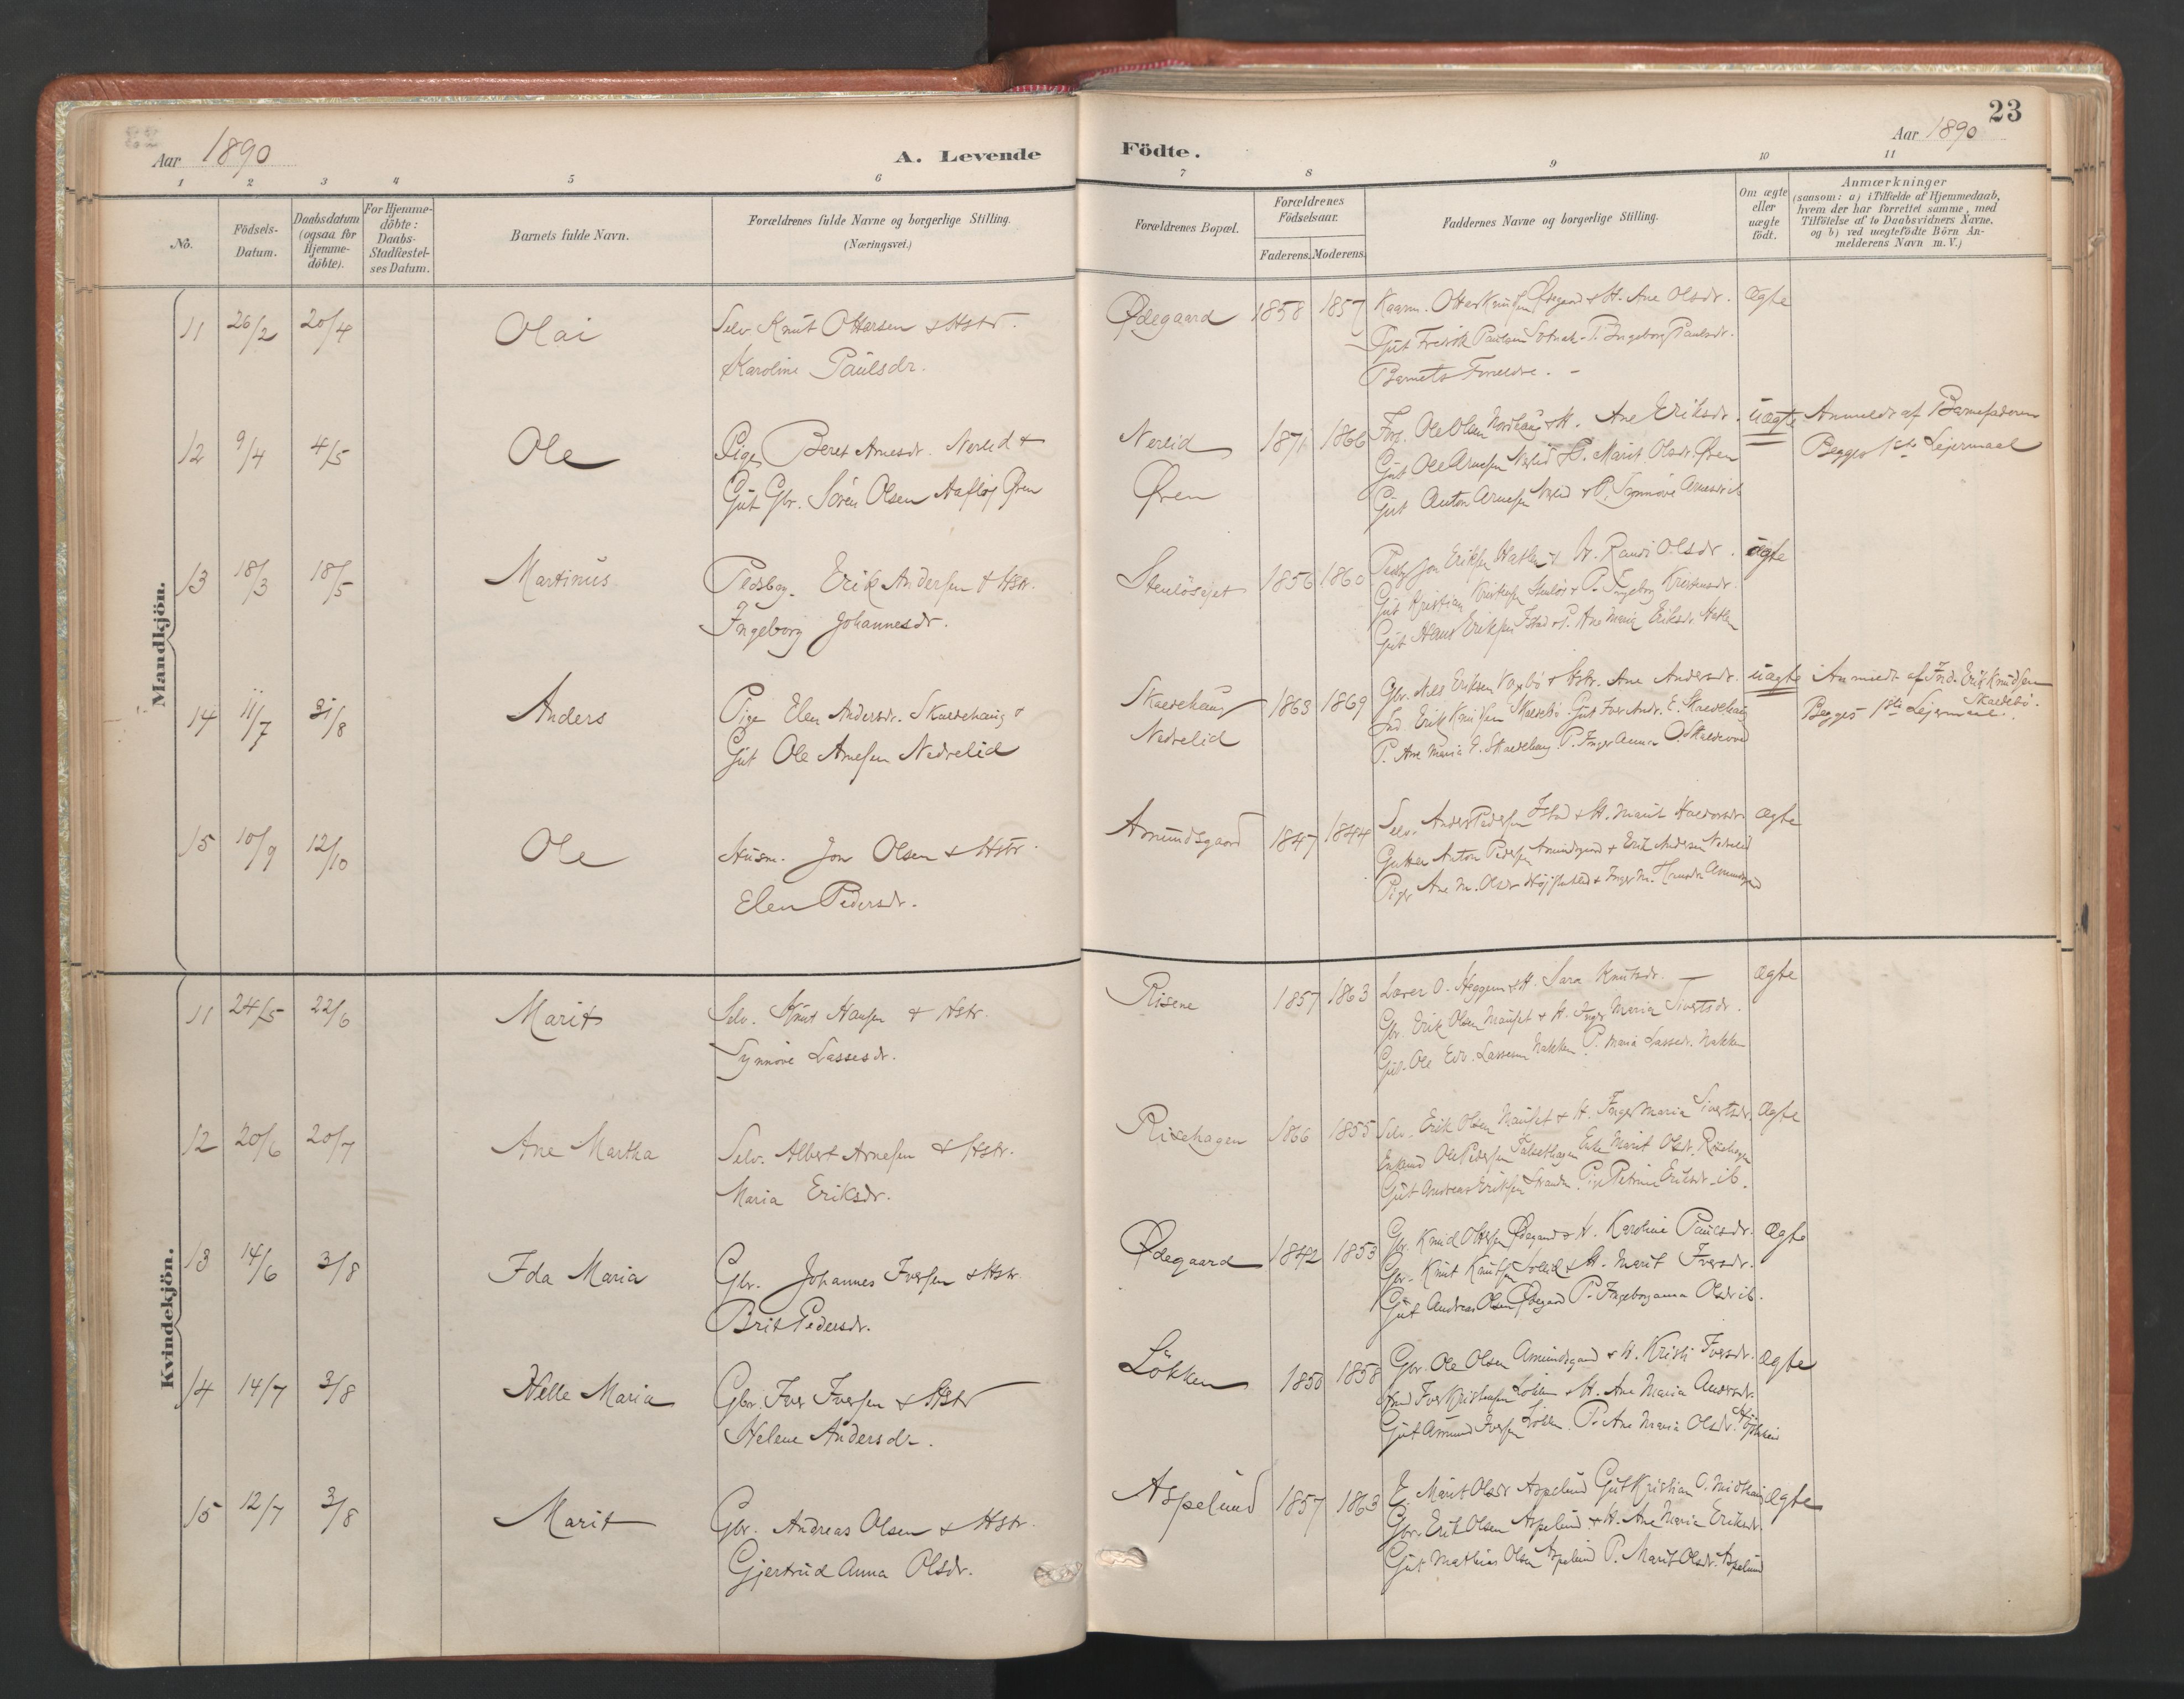 23
Aar 1890
A. Levende
Födte.
Aar 1890
1 2 3 4 5 6 7 8 9 10 11
No.
Födsels-Datum.
Daabsdatum (ogsaa for Hjemme-döbte).
For Hjemme-döbte: Daabs-Stadfæstel-ses Datum.
Barnets fulde Navn.
Forældrenes fulde Navne og borgerlige Stilling.
(Næringsvei.)
Forældrenes Bopæl.
Forældrenes Födselsaar.
Faderens. Moderens.
Faddernes Navne og borgerlige Stilling.
Om ægte eller uægte födt.
Anmærkninger
(saasom: a) i Tilfælde af Hjemmedaab,
hvem der har forrettet samme, med
Tilföielse af to Daabsvidners Navne.
og b) ved uægtefödte Börn An-
melderens Navn m. V.)
Mandkjön.
11 26/2 20/4 Olai Selv Knut Ottersen & Hstr. Ødegaard 1858 1857 Ane Olsdr. Ægte
Karoline Paulsdr. Ingeborg Paulsdr.
Barnets Foreldre. -
12 9/4 4/5 Ole Pige Beret Arnesdr. Nerlid & Nerlid 1871 1866 Ole Olsen Nordhaug & H. Ane Eriksdr. uægte Anmeldt af Barnefaderen
Gut Gbr. Sören Olsen Øren Øren Gut Ole Arnesen Nerlid & P. Marit Olsdr. Øren Begges 1ste Lejermaal
Gut Anton Arnesen Nerlid & P. Synnöve Arnesdr. ib
13 18/3 18/5 Martinus Pladsbrg. Erik Andersen & Hstr. 1856 1860 Jon Eriksen Hatlen & H. Randi Olsdr. ægte
Ingeborg Johannesdr. Gut Kristian Kristensen & P. Ingeborg Kristensdr.
Gut Hans Eriksen Istad & P. Ane Maria Eriksdr. Hatlen
14 11/7 31/8 Anders Pige Elen Andersdr. Skaredehaug & Skaredehaug 1863 1869 Gbr. Nils Eriksen & Hstr. Ane Andersdr. uægte Anmeldt af Ind. Erik Knudsen
Gut Ole Arnesen Nedrelid Nedrelid Ind. Erik Knudsen Gut Iver Andr. Begges 1ste Lejermaal.
P. Ane Maria P. Inger Anna O.
15 10/9 12/10 Ole Husm. Jon Olsen & Hstr. Amundsgaard 1847 1844 Selv. Anders Pedersen Istad & H. Marit Haldorsdr. Ægte
Elen Pedersdr. Gutter Anton Pedersen Amundsgaard & Erik Andersen Nedrelid
Piger Ane M. Olsdr. & Inger M. Hansdr. Amundsgaard
Kvindekjön.
11 24/5 22/6 Marit Selv. Knut Hansen & Hstr. Risene 1857 1863 Lærer O. Heggem & H. Sara Knutsdr. — Ægte
Synnöve Lassesdr. Gbr. Erik Olsen Mauset & H. Inger Maria Sivertsdr.
Gut. Ole Edv. Lassesen Nakken P. Maria Lassesdr. Nakken
12 20/6 20/7 Ane Martha Selv. Albert Arnesen & Hstr. Risehagen 1866 1855 Selv. Erik Olsen Mauset & H. Inger Maria Sivertsdr. Ægte
Maria Eriksdr. Enkemd Ole Pedersen Enke Marit Olsdr. Risehagen
Gut Andreas Eriksen Pige Petrine Eriksdr. ib.
13 14/6 3/8 Ida Maria Gbr. Johannes Iversen & Hstr. Ødegaard 1842 1853 Gbr. Knud Ottersen Ødegaard & H. Karoline Paulsdr. Ægte
Brit Pedersdr. Gbr. Knut Knutsen Sollid & H. Marit Iversdr.
Gut Andreas Olsen Ødegaard P. Ingeborganna Olsdr ib.
14 14/7 3/8 Helle Maria Gbr. Iver Iversen & Hstr Lökken 1850 1858 Gbr. Ole Olsen Amundsgaard & H. Kristi Iversdr. Ægte
Helene Andersdr. Iver Kristensen Lökken & H. Ane Maria Andersdr.
Gut Amund Iversen Lökken. P. Ane Maria Olsdr.
15 12/7 3/8 Marit Gbr. Andreas Olsen & Hstr. Aspelund 1857 1863 E. Marit Olsdr Aspelund Gut Kristian O. Midthaug Ægte
Gjertrud Anna Olsdr. Gbr. Erik Olsen Aspelund & H. Ane Maria Eriksdr.
Gut Mathias Olsen Aspelund P. Marit Olsdr. Aspelund